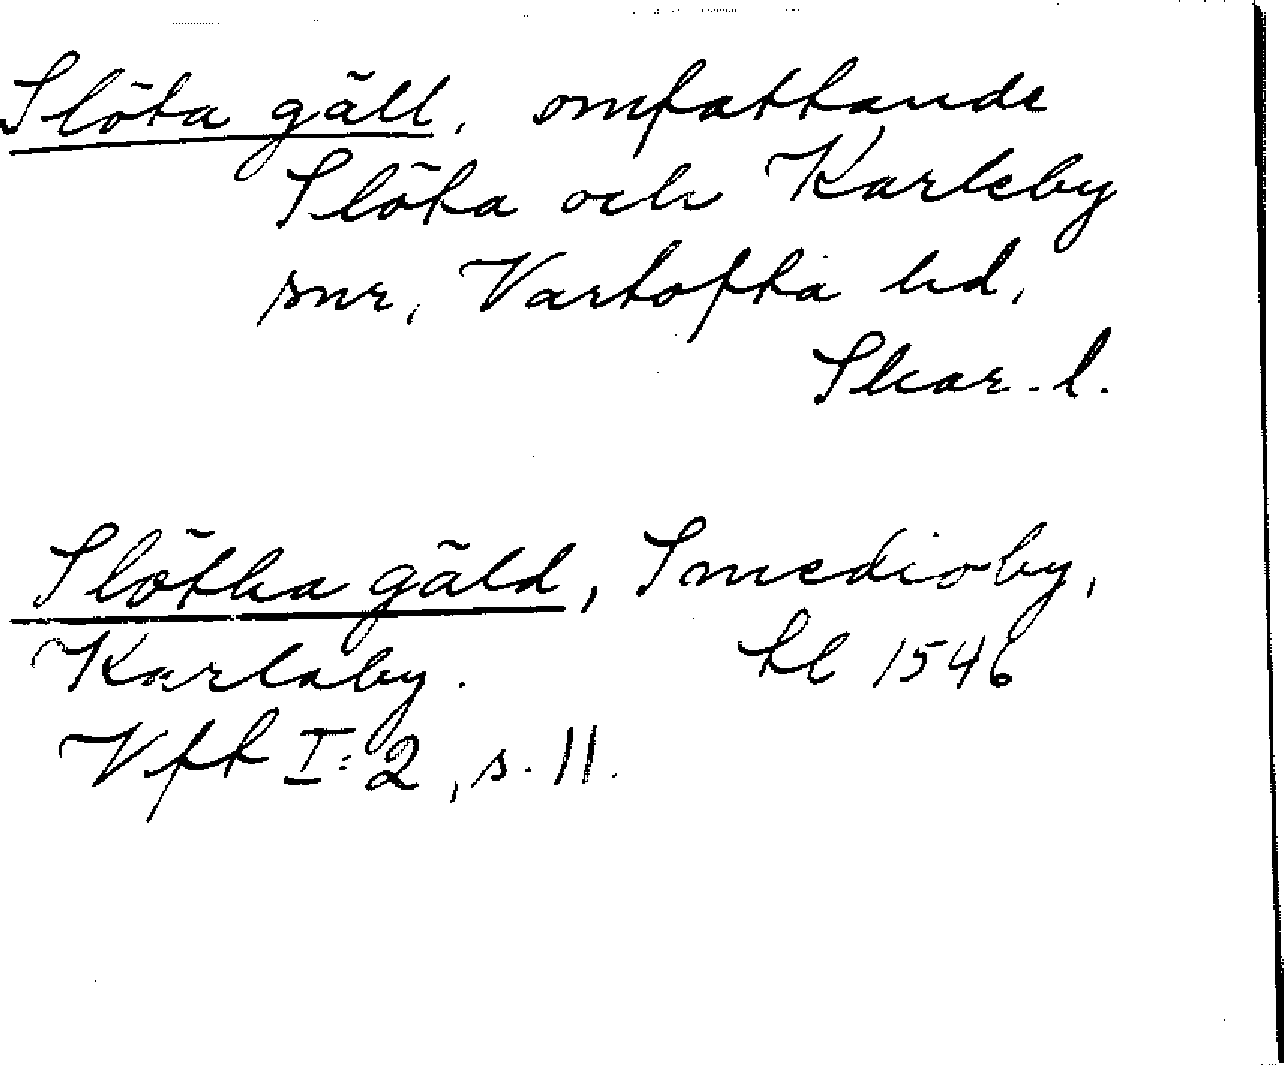 Slöta gäll, omfattande
Slöta och Karleby
snr, Vartofta hd,
Skar. l.
Slötha gäld, Smedioby,
Karlaby. hl 1546
Vft I:2, s. 11.